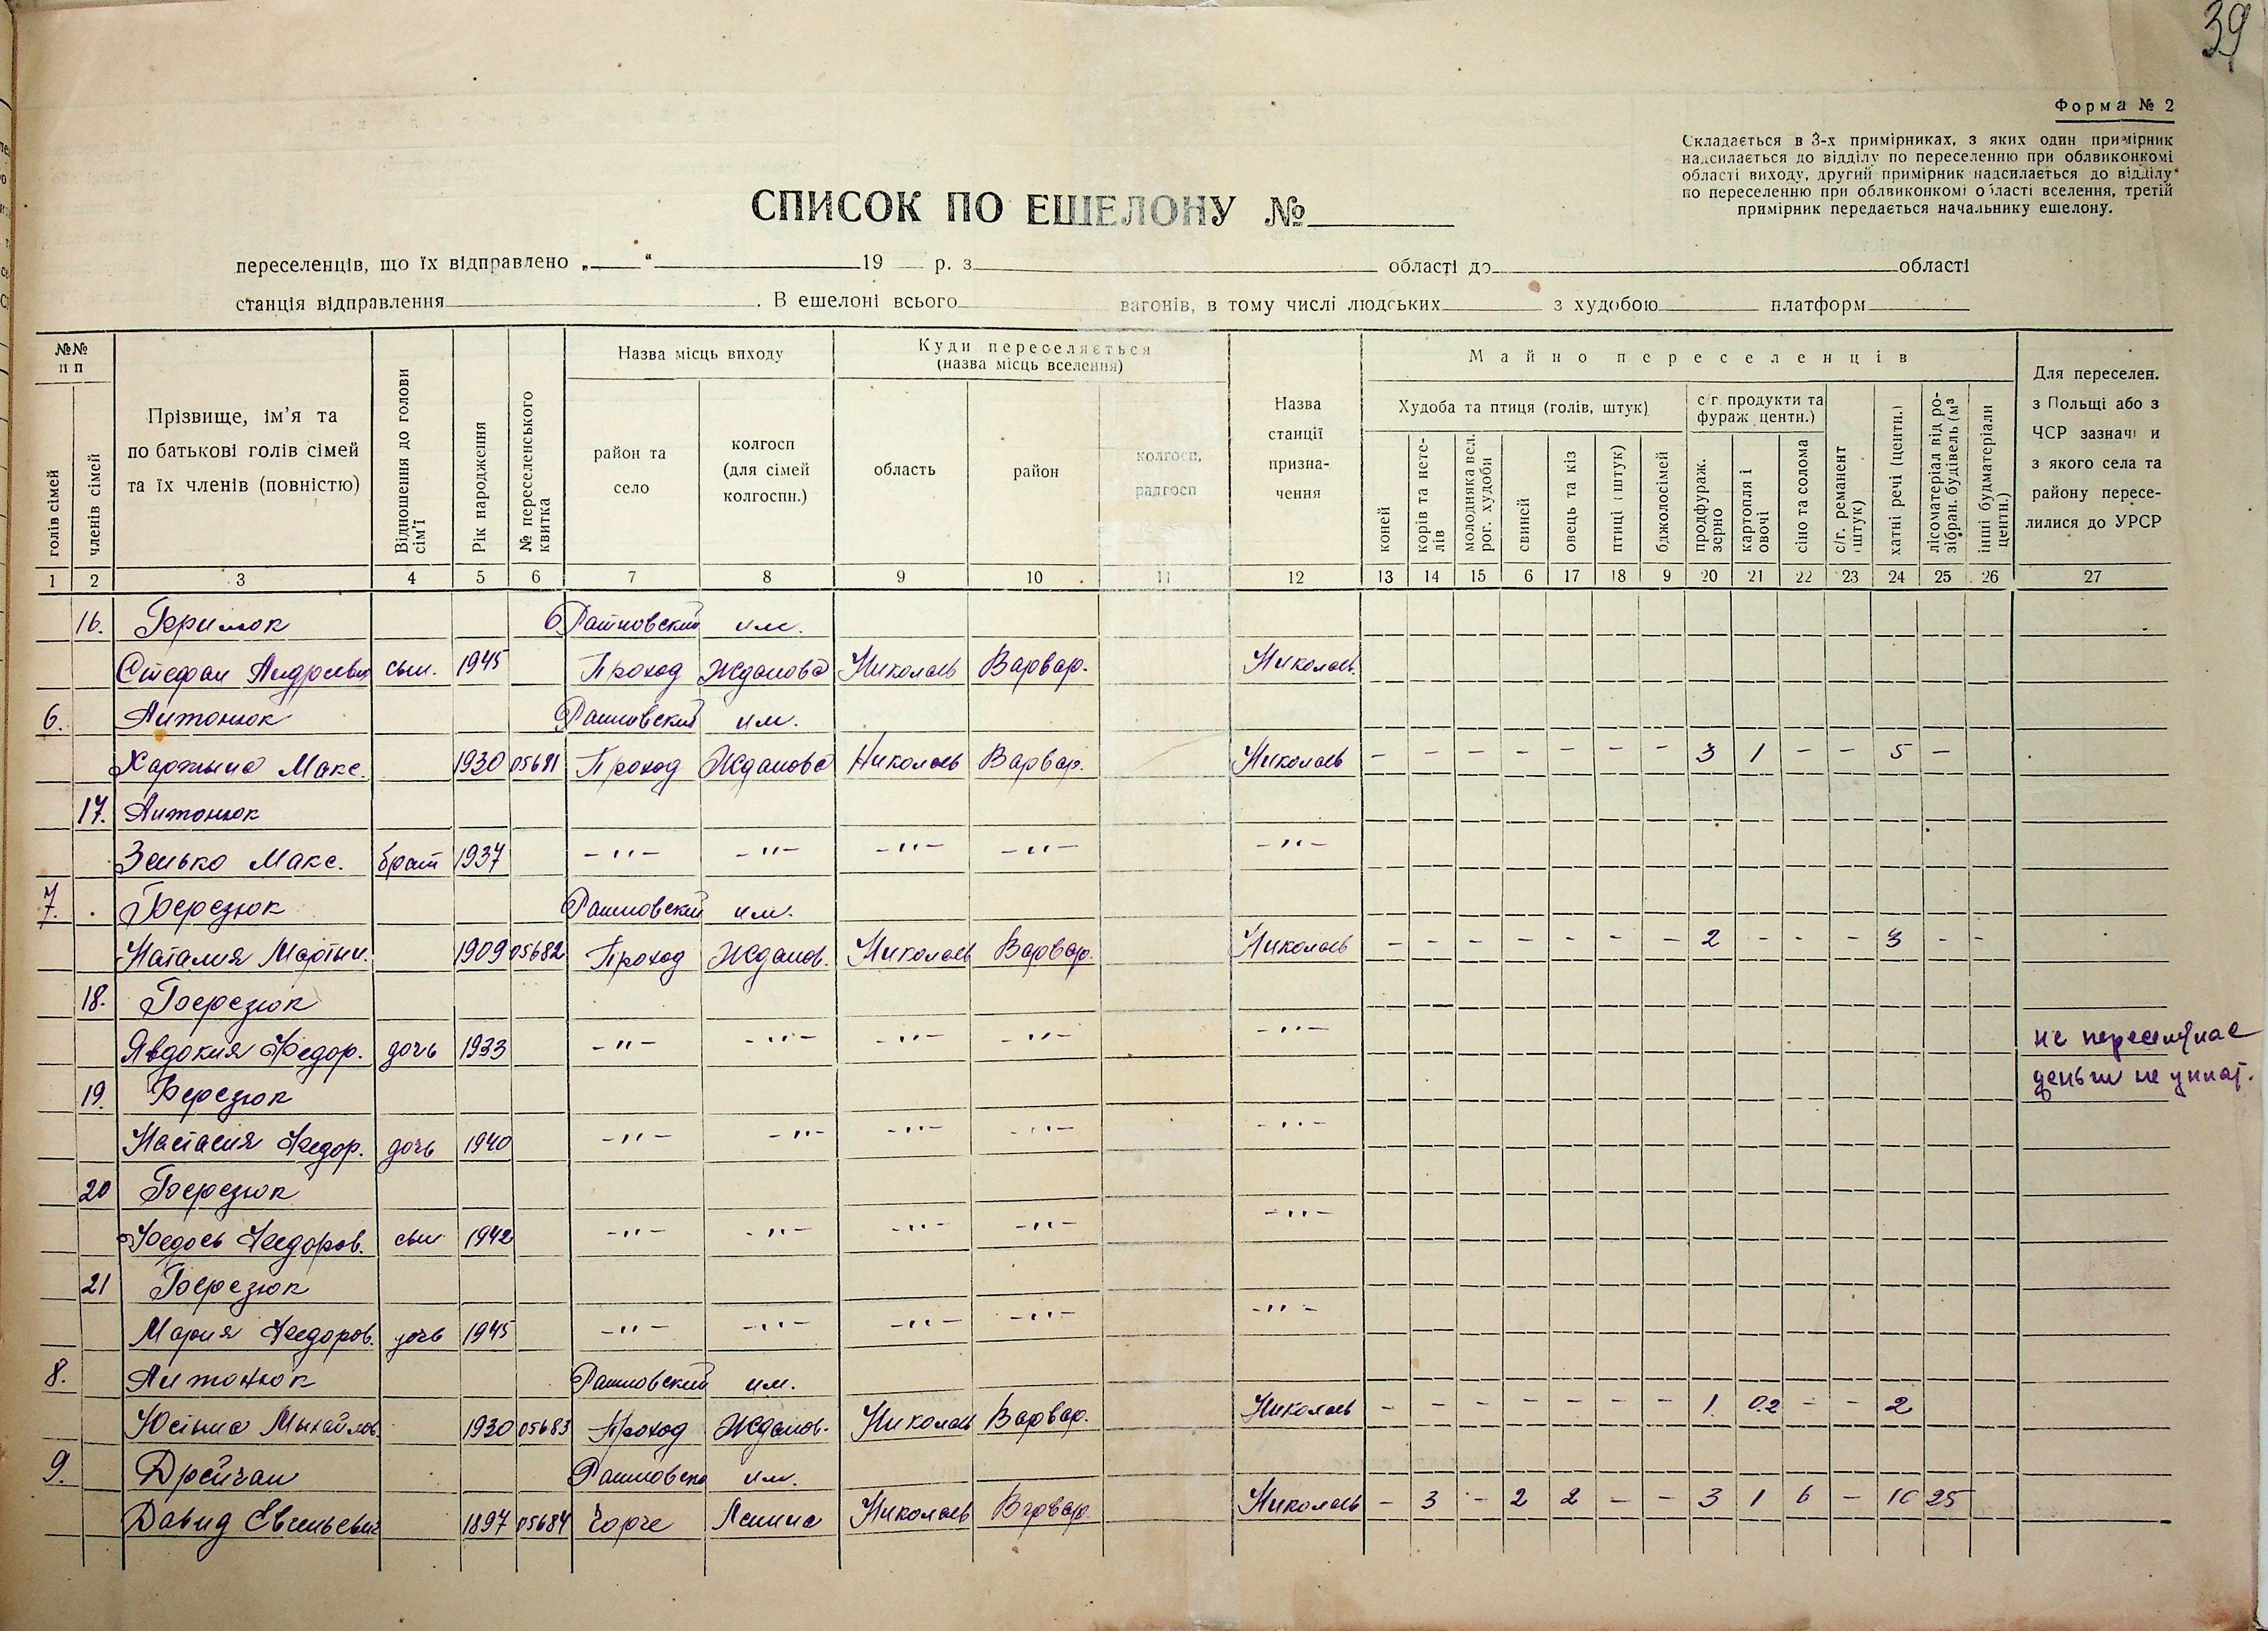 39
Форма № 2
Складається в 3-х примірниках, з яких один примірник
надсилається до відділу по переселенню при облвиконкомі
області виходу, другий примірник надсилається до відділу
по переселенню при облвиконкомі області вселення, третій
примірник передається начальнику ешелону.
СПИСОК ПО ЕШЕЛОНУ №
переселенців, що їх відправлено „ “ 19 р. з області до області
станція відправлення . В ешелоні всього вагонів, в тому числі людських з худобою платформ
№№ п п
голів сімей
членів сімей
Прізвище, ім’я та
по батькові голів сімей
та їх членів (повністю)
Відношення до голови сім’ї
Рік народження
№ переселенського квитка
Назва місць виходу
район та
село
колгосп
(для сімей
колгоспн.)
Куди переселяється
(назва місць вселення)
область
район
колгосп,
радгосп
Назва
станції
призна-
чення
Майно переселенців
Худоба та птиця (голів, штук)
коней
корів та нете-
лів
молодняка вел.
рог. худоби
свиней
овець та кіз
птиці (штук)
бджолосімей
с/г. продукти та
фураж центн.)
продфураж.
зерно
картопля і
овочі
сіно та солома
с/г. реманент
(штук)
хатні речі (центн.)
лісоматеріал від ро-
зібран. будівель (м³
інші будматеріали
центн.)
Для переселен.
з Польщі або з
ЧСР зазначи и
з якого села та
району пересе-
лилися до УРСР
1 2 3 4 5 6 7 8 9 10 11 12 13 14 15 6 17 18 9 20 21 22 23 24 25 26 27
16. Ратновский им.
Стефан Андреевич сын. 1945 Проход Жданова Николаев Варвар. Николаев.
6. Антонюк Ратновский им.
Макс. 1930 05681 Проход Жданова Николаев Варвар. Николаев - - - - - - - 3 1 - - 5 -
17. Антонюк
Зенько Макс. брат 1937 -"- -"- -"- -"- -"-
7. Березюк Ратновский им.
Наталия Мартын. 1909 05682 Проход Жданов. Николаев Варвар. Николаев - - - - - - - 2 - - - 3 - -
18. Березюк
Явдокия Федор. дочь 1933 -"- -"- -"- -"- -"- не
19. Березюк деньги не
Настасия Федор. дочь 1940 -"- -"- -"- -"- -"-
20 Березюк
Федось Федоров. сын 1942 -"- -"- -"- -"- -"-
21 Березюк
Мария Федоров. дочь 1945 -"- -"- -"- -"- -"-
8. Антонюк Ратновский им.
Михайлов. 1930 05683 Проход Жданов. Николаев Варвар. Николаев - - - - - - - 1 0.2 - - 2
9. Дрейчан Ратновск им.
Давид Евсеьевич 1897 05684 Чорче Ленина Николаев Варвар. Николаев - 3 - 2 2 - - 3 1 6 - 10 25